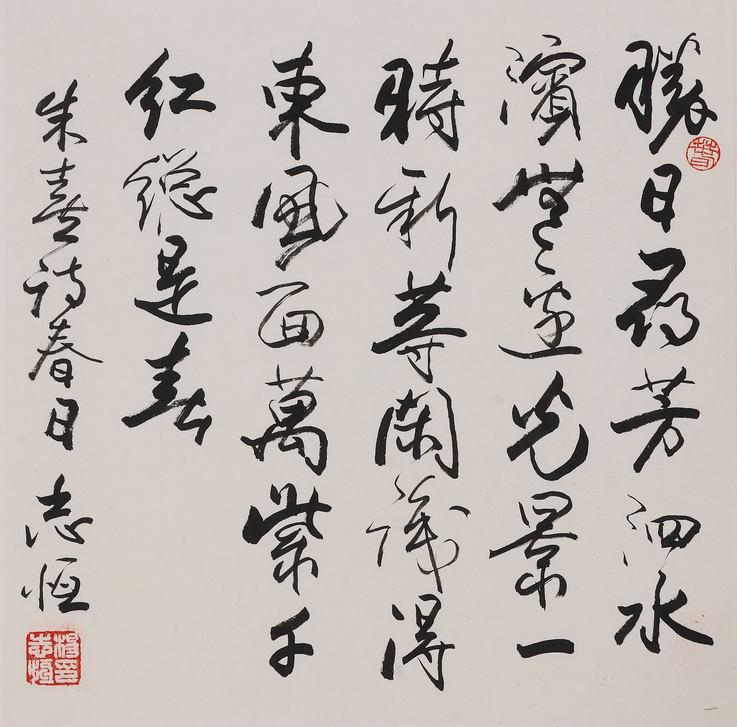 勝日尋芳泗水
濱無邊光景一
時新等閑識得
東風面萬紫千
紅總是春
朱熹詩春日 志恒